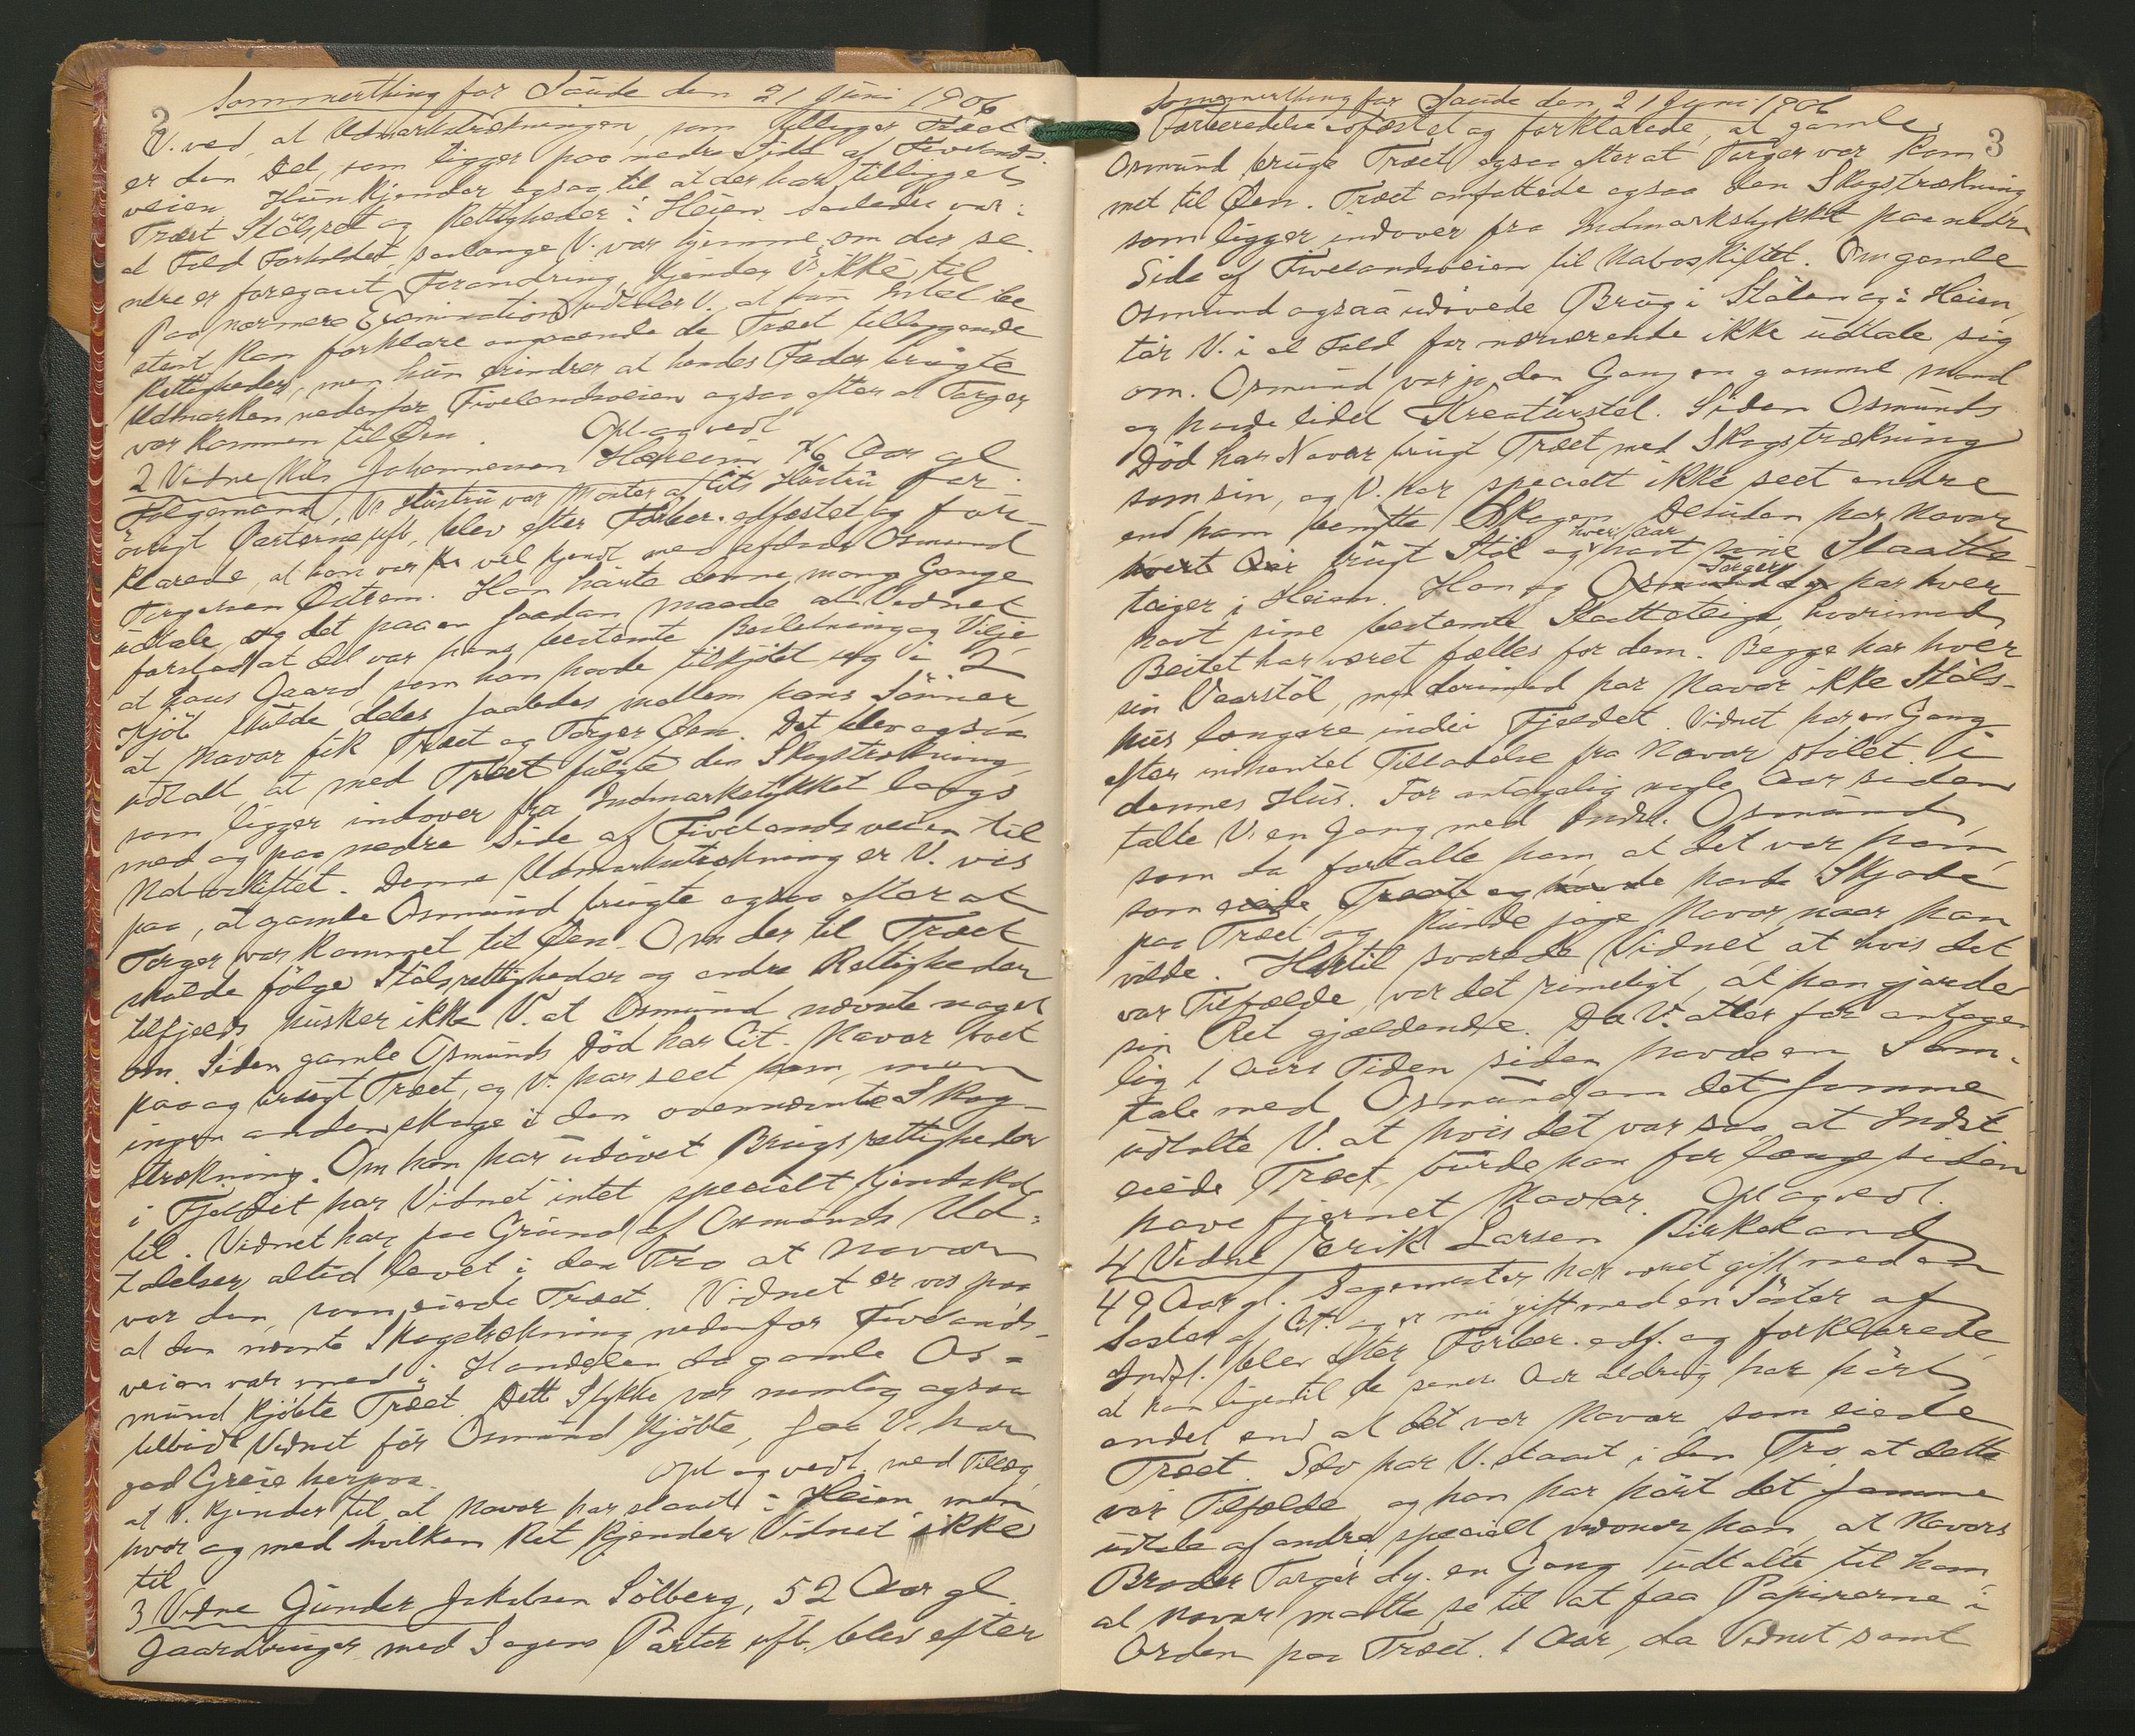 Sommerthing for Saude den 21 Juni 1906
2
V. ved, at Udmarkstrækningen, som tillegger Træet
er den Del, som ligger paa nedre Side af Fivelands-
veien. Hun kjender ogsaa til at der har tilligget
Træet Stölsret og Rettigheder i Heien. Saaledes var i
al Fald Forholdet, saalænge V. var hjemme, om der se-
nere er foregaaet Forandring, kjender V. ikke til
Paa nærmere Examination udtaler V., at hun intet be
stemt kan forklare angaaende de Træet tilliggende
Rettigheder, men hun erindrer at hendes Fader brugte
Udmarken nedenfor Fivelandsveien ogsaa efter at Torger
var kommen til Öen. Opl. og vedt.
2 Vidne Nils Johannessen Hæreim 76 Aar gl. for
Folgemand, Vs Hustru var Moster af Cits Hustru
övrigt Parterne uft., blev efter Forber. edfæstet og for-
klarede, at han var vel kjendt med afdöde Osmund
Torgersen Östrem. Han hörte denne mang Gange
udtale, og det paa en saadan Maade, at Vidnet
forstod at det var hans bestemte Beslutning og Vilje,
at hans Gaard, som han havde tilkjöbt sig i 2
Kjöb skulde deles saaledes mellem hans Sönner,
at Navar fik Træet og Torger Öen. Det blev ogsaa
udtalt, at med Træet fulgte den Skogstrækning,
som ligger indover fra Indmarkstykket langs
med og paa nedre Side af Fivelandsveien til
Naboskiftet. Denne Udmarkstrækning er V. vis
paa, at gamle Osmund brugte ogsaa efter at
Torger var kommet til Öen. Om der til Træet
skulde fölge Stölsrettigheder og andre Rettigheder
tilfjelds, husker ikke V. at Osmund nævnte noget
om. Siden gamle Osmunds Död har Cit. Navar boet
paa og brugt Træet, og V. har seet ham, men
ingen anden skoge i den ovennævnte Skog-
strækning. Om han har udövet Brugsrettigheder
i Fjeldet har Vidnet intet specielt Kjendskab
til. Vidnet har paa Grund af Osmunds Ud-
talelser altid levet i den Tro at Navar
var den, som eiede Træet. Vidnet er vis paa
at den nævnte Skogstrækning nedenfor Fivelands-
veien var med i Handelen da gamle Os-
mund kjöbte Træet. Dette Stykke var nemlig ogsaa
tilbudt Vidnet för Osmund kjöbte, saa V. har
god Greie herpaa. Opl. og vedt. med Tillæg,
at V. kjender til, at Navar har slaaet i Heien, men
hvor og med hvilken Ret kjender Vidnet ikke
til
3 Vidne Gunder Jakobsen Sölberg, 52 Aar gl.
Gaardbruger, med Sagens Parter uft., blev efter
Sommerthing for Saude den 21 Juni 1906
3
Forberedelse edfæstet og forklarede, at gamle
Osmund bruge Træet ogsaa efter at Torger var kom
met til Öen. Træet omfattede ogsaa den Skogstrækning,
som ligger indover fra Indmarkstykket paa nedre
Side af Fivelandsveien til Naboskiftet. Om gamle
Osmund ogsaa udövede Brug i Stölen og i Heien,
tör V. i al Fald for nærværende ikke udtale sig
om. Osmund var jo den Gang en gammel Mand
og havde lidet Kreaturstel. Siden Osmunds
Död har Navar brugt Træet med Skogstrækning
som sin, og V. har specielt ikke seet andre
end ham benytte Skogen. Desuden har Navar
hvert Aar
hvert Aar brugt Stöl og havt sine Slaatte-
Torger
teiger i Heien. Han og Osmund dy har hver
havt sine bestemte Slaatteteiger, hvorimod
Beitet har været fælles for dem. Begge har hver
sin Vaarstöl, men derimod har Navar ikke Stöls-
hus længere inde i Fjeldet. Vidnet har en Gang
efter indhentet Tilladelse fra Navar stölet i
dennes Hus. For antagelig nogle Aar siden
talte V. en Gang med Indst. Osmund,
som da fortalte ham, at det var ham,
som eiede Træet og havde havde Skjöde
paa Træet og kunde jage Navar naar han
vilde. Hertil svarede Vidnet, at hvis det
var Tilfælde, var det rimeligt, at han gjorde
sin Ret gjældende. Da V. atter for antage-
lig 1 Aars Tiden siden havde en Sam-
tale med Osmund om det samme,
udtalte V. at hvis det var saa, at Indst
eiede Træet, burde han for længe siden
have fjernet Navar. Opl. og vedt.
4 Vidne Erik Larsen Birkeland
49 Aar gl. Sagmester, har været gift med en
Söster af Cit. og er nu gift med en Söster af
Indst. blev efter Forber. edf. og forklarede,
at han ligetil de senere Aar aldrig har hört
andet end at det var Navar som eiede
Træet. Selv har V. staaet i den Tro, at dette
var Tilfælde, og han har hört det samme
udtale af andre, specielt nævner han, at Navars
Broder Torger dy. en Gang udtalte til ham
at Navar maatte se til at faa Papirerne i
Orden paa Træet. 1 Aar, da Vidnet samt